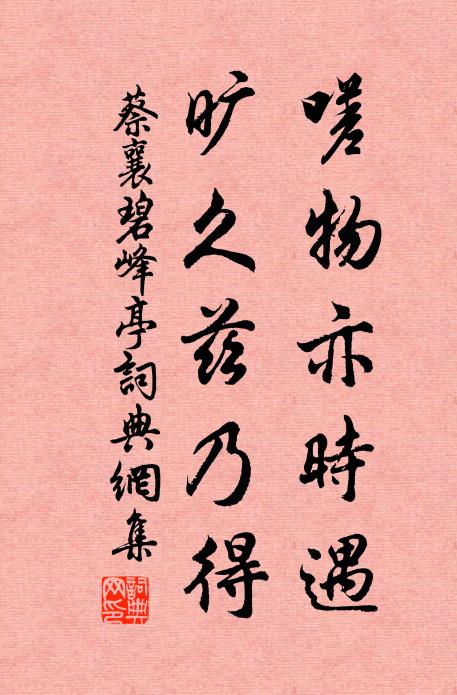 嗟物亦時遇
旷久兹乃得
蔡襄碧峰亭詞典網集
詞典網印